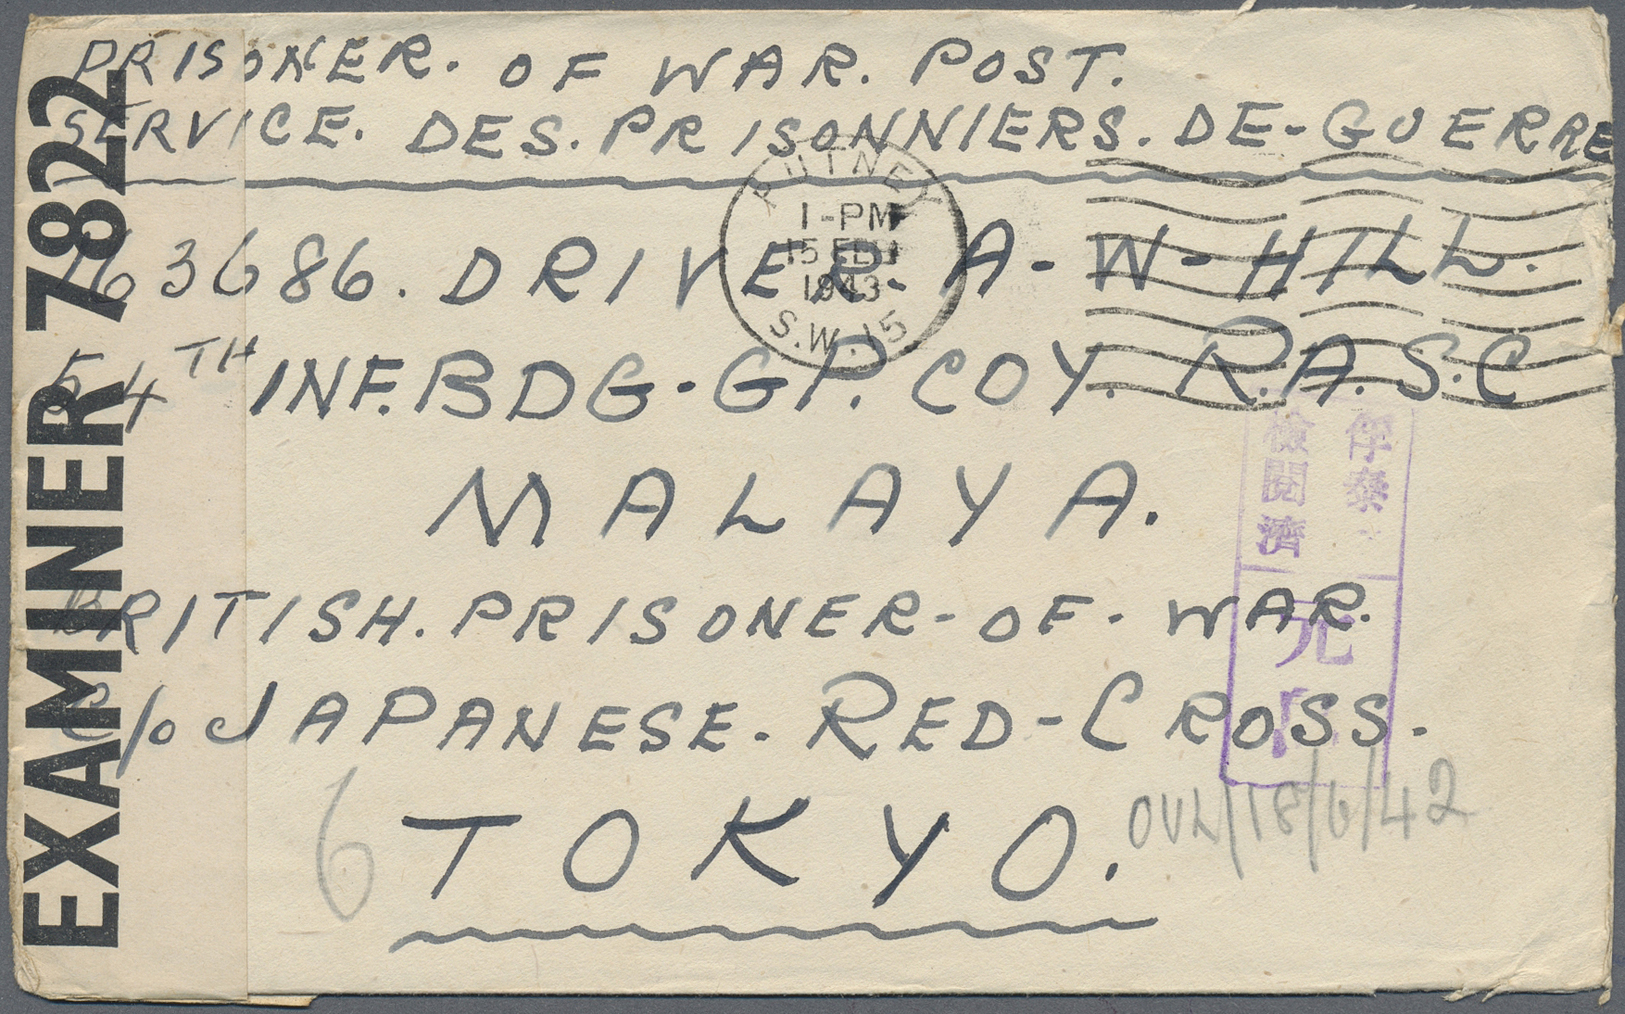 PRISONER. OF WAR. POST.
SERVICE. DES. PRISONNIERS. DE-GUERRE
163686. DRIVER- A-W-HILL.
54TH INF.BDG-GP. COY. R.A.S.C
MALAYA.
BRITISH. PRISONER-OF-WAR.
C/o JAPANESE. RED-CROSS.
TOKYO.
EXAMINER 7822
PUTNEY
1-PM
15 FEB
1943
S.W.15
俘泰
檢閲濟
元
6
OVL/18/6/42